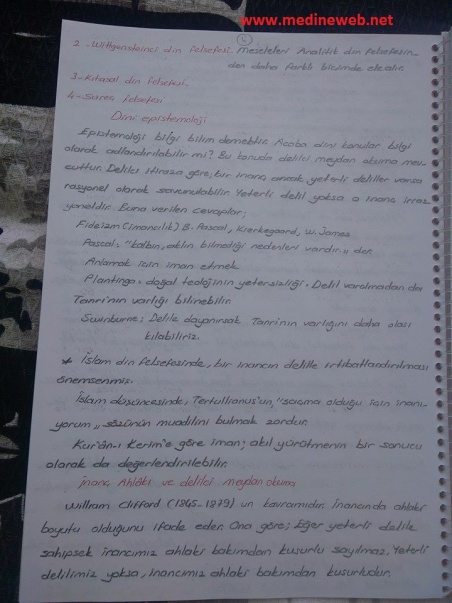 www.medineweb.net
4
2- Wittgensteinci din felsefesi. Meseleleri Analitik din felsefesin-
den daha farklı biçimde ele alır.
3- Kıtasal din felsefesi.
4- Süreç felsefesi
Dini epistemoloji
Epistemoloji bilgi bilim demektir. Acaba dini konular bilgi
olarak adlandırılabilir mi? Bu konuda delilci meydan okuma mev-
cuttur. Delilci itiraza göre; bir inanç ancak, yeterli deliller varsa
rasyonel olarak savunulabilir. Yeterli delil yoksa o inanç irras-
yoneldir. Buna verilen cevaplar;
Fideizm (imancılık) B. Pascal, Kierkegaard, W. James
Pascal; "kalbin, aklın bilmediği nedenleri vardır." der.
Anlamak için iman etmek
Plantinga: doğal teolojinin yetersizliği. Delil varolmadan da
Tanrı'nın varlığı bilinebilir.
Swinburne; Delile dayanırsak Tanrı'nın varlığını daha olası
kılabiliriz.
* İslam din felsefesinde, bir inancın delille irtibatlandırılması
önemsenmiş.
İslam düşüncesinde, Tertullianus'un, "saçma olduğu için inanı-
yorum" sözünün muadilini bulmak zordur.
Kur'ân-ı Kerim'e göre iman; akıl yürütmenin bir sonucu
olarak da değerlendirilebilir.
İnanç Ahlâkı ve delilci meydan okuma
William Clifford (1845-1879) un kavramıdır. İnancında ahlaki
boyutu olduğunu ifade eder. Ona göre; Eğer yeterli delile
sahipsek inancımız ahlaki bakımdan kusurlu sayılmaz. Yeterli
delilimiz yoksa, inancımız ahlaki bakımdan kusurludur.